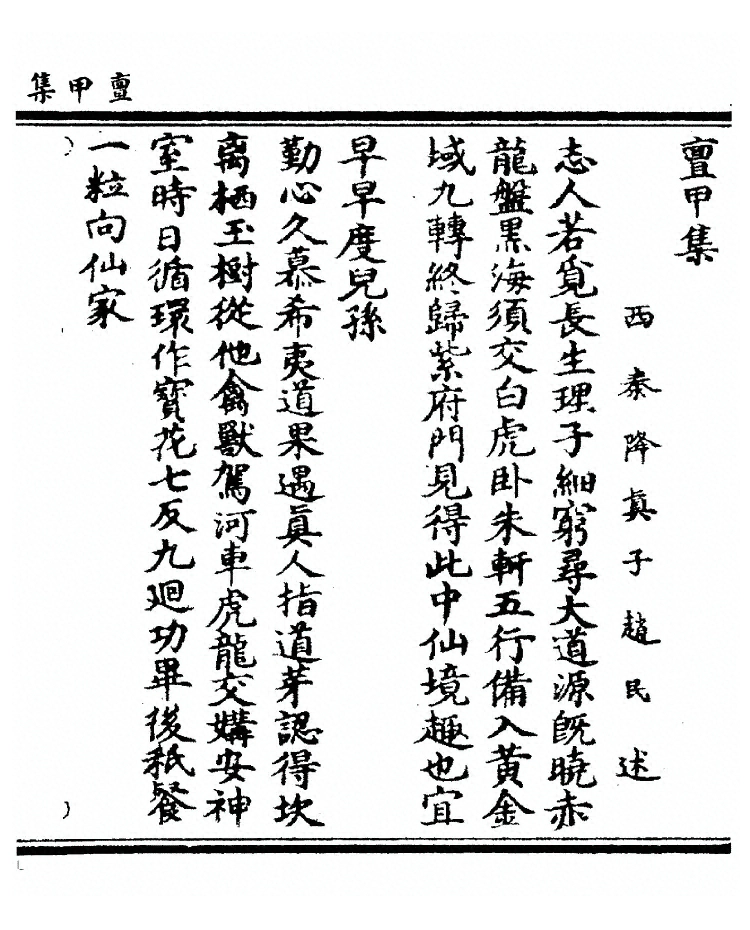 亶甲集
亶甲集
西秦降真子趙民述
志人若覓長生理子細窮尋大道源既曉赤
龍盤黑海須交白虎卧朱軒五行備入黃金
域九轉終歸紫府門見得此中仙境趣也宜
早早度兒孫
勤心久慕希夷道果遇真人指道芽認得坎
离栖玉樹從他禽獸駕河車虎龍交媾安神
室時日循環作寶花七反九迴功畢後秖餐
一粒向仙家